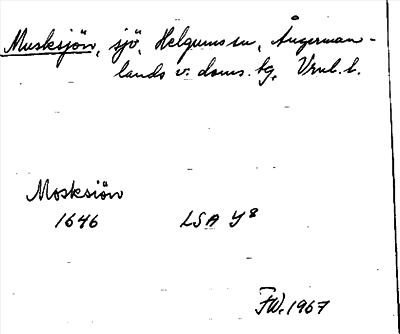 Musksjön, sjö, Helgums sn, Ångerman-
lands v. doms. tg, Vnl. l.
Mosksiön
1646 LSA Y8
FW. 1967